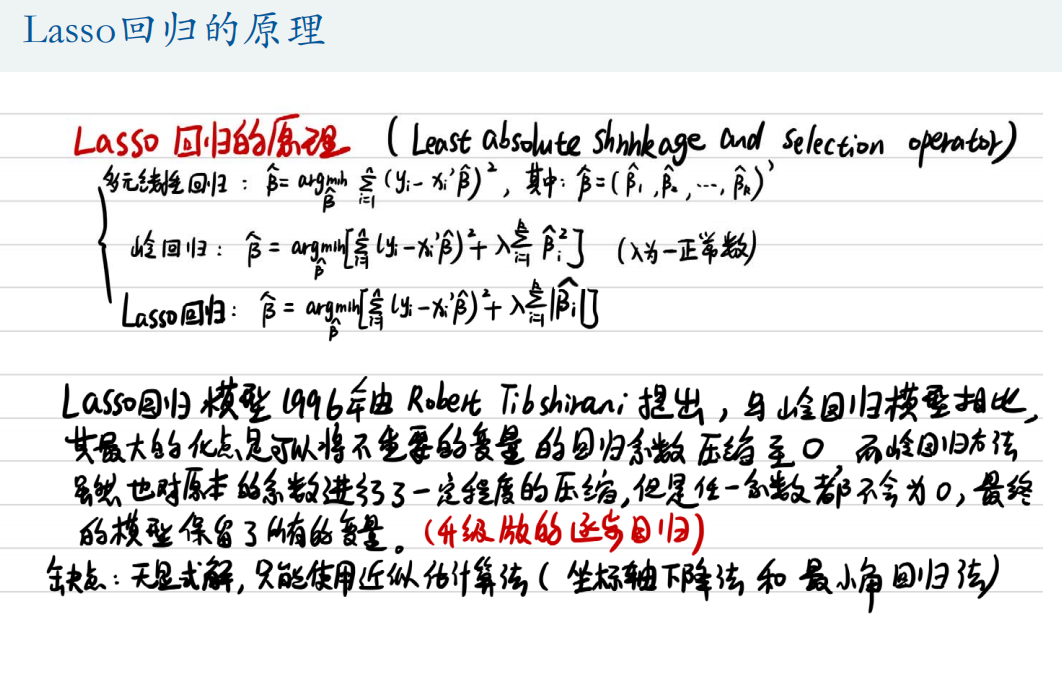 Lasso回归的原理
Lasso 回归的原理 (Least absolute shrinkage and selection operator)
多元线性回归: β̂ = argmin_β̂ Σ_{i=1}^{n} (yᵢ - xᵢ'β̂)², 其中: β̂ = (β̂₁, β̂₂, ..., β̂ₖ)'
岭回归: β̂ = argmin_β̂ [Σ_{i=1}^{n} (yᵢ - xᵢ'β̂)² + λ Σ_{i=1}^{k} β̂ᵢ²] (λ为一正常数)
Lasso回归: β̂ = argmin_β̂ [Σ_{i=1}^{n} (yᵢ - xᵢ'β̂)² + λ Σ_{i=1}^{k} |β̂ᵢ|]
Lasso回归 模型 1996年由 Robert Tibshirani 提出, 与岭回归模型相比,
其最大的优点是可以将不重要的变量的回归系数压缩至0 而岭回归方法
虽然也对原本的系数进行了一定程度的压缩, 但是任一系数都不会为0, 最终
的模型保留了所有的变量。(升级版的逐步回归)
缺点: 无显式解, 只能使用近似估计算法 (坐标轴下降法 和 最小角回归法)